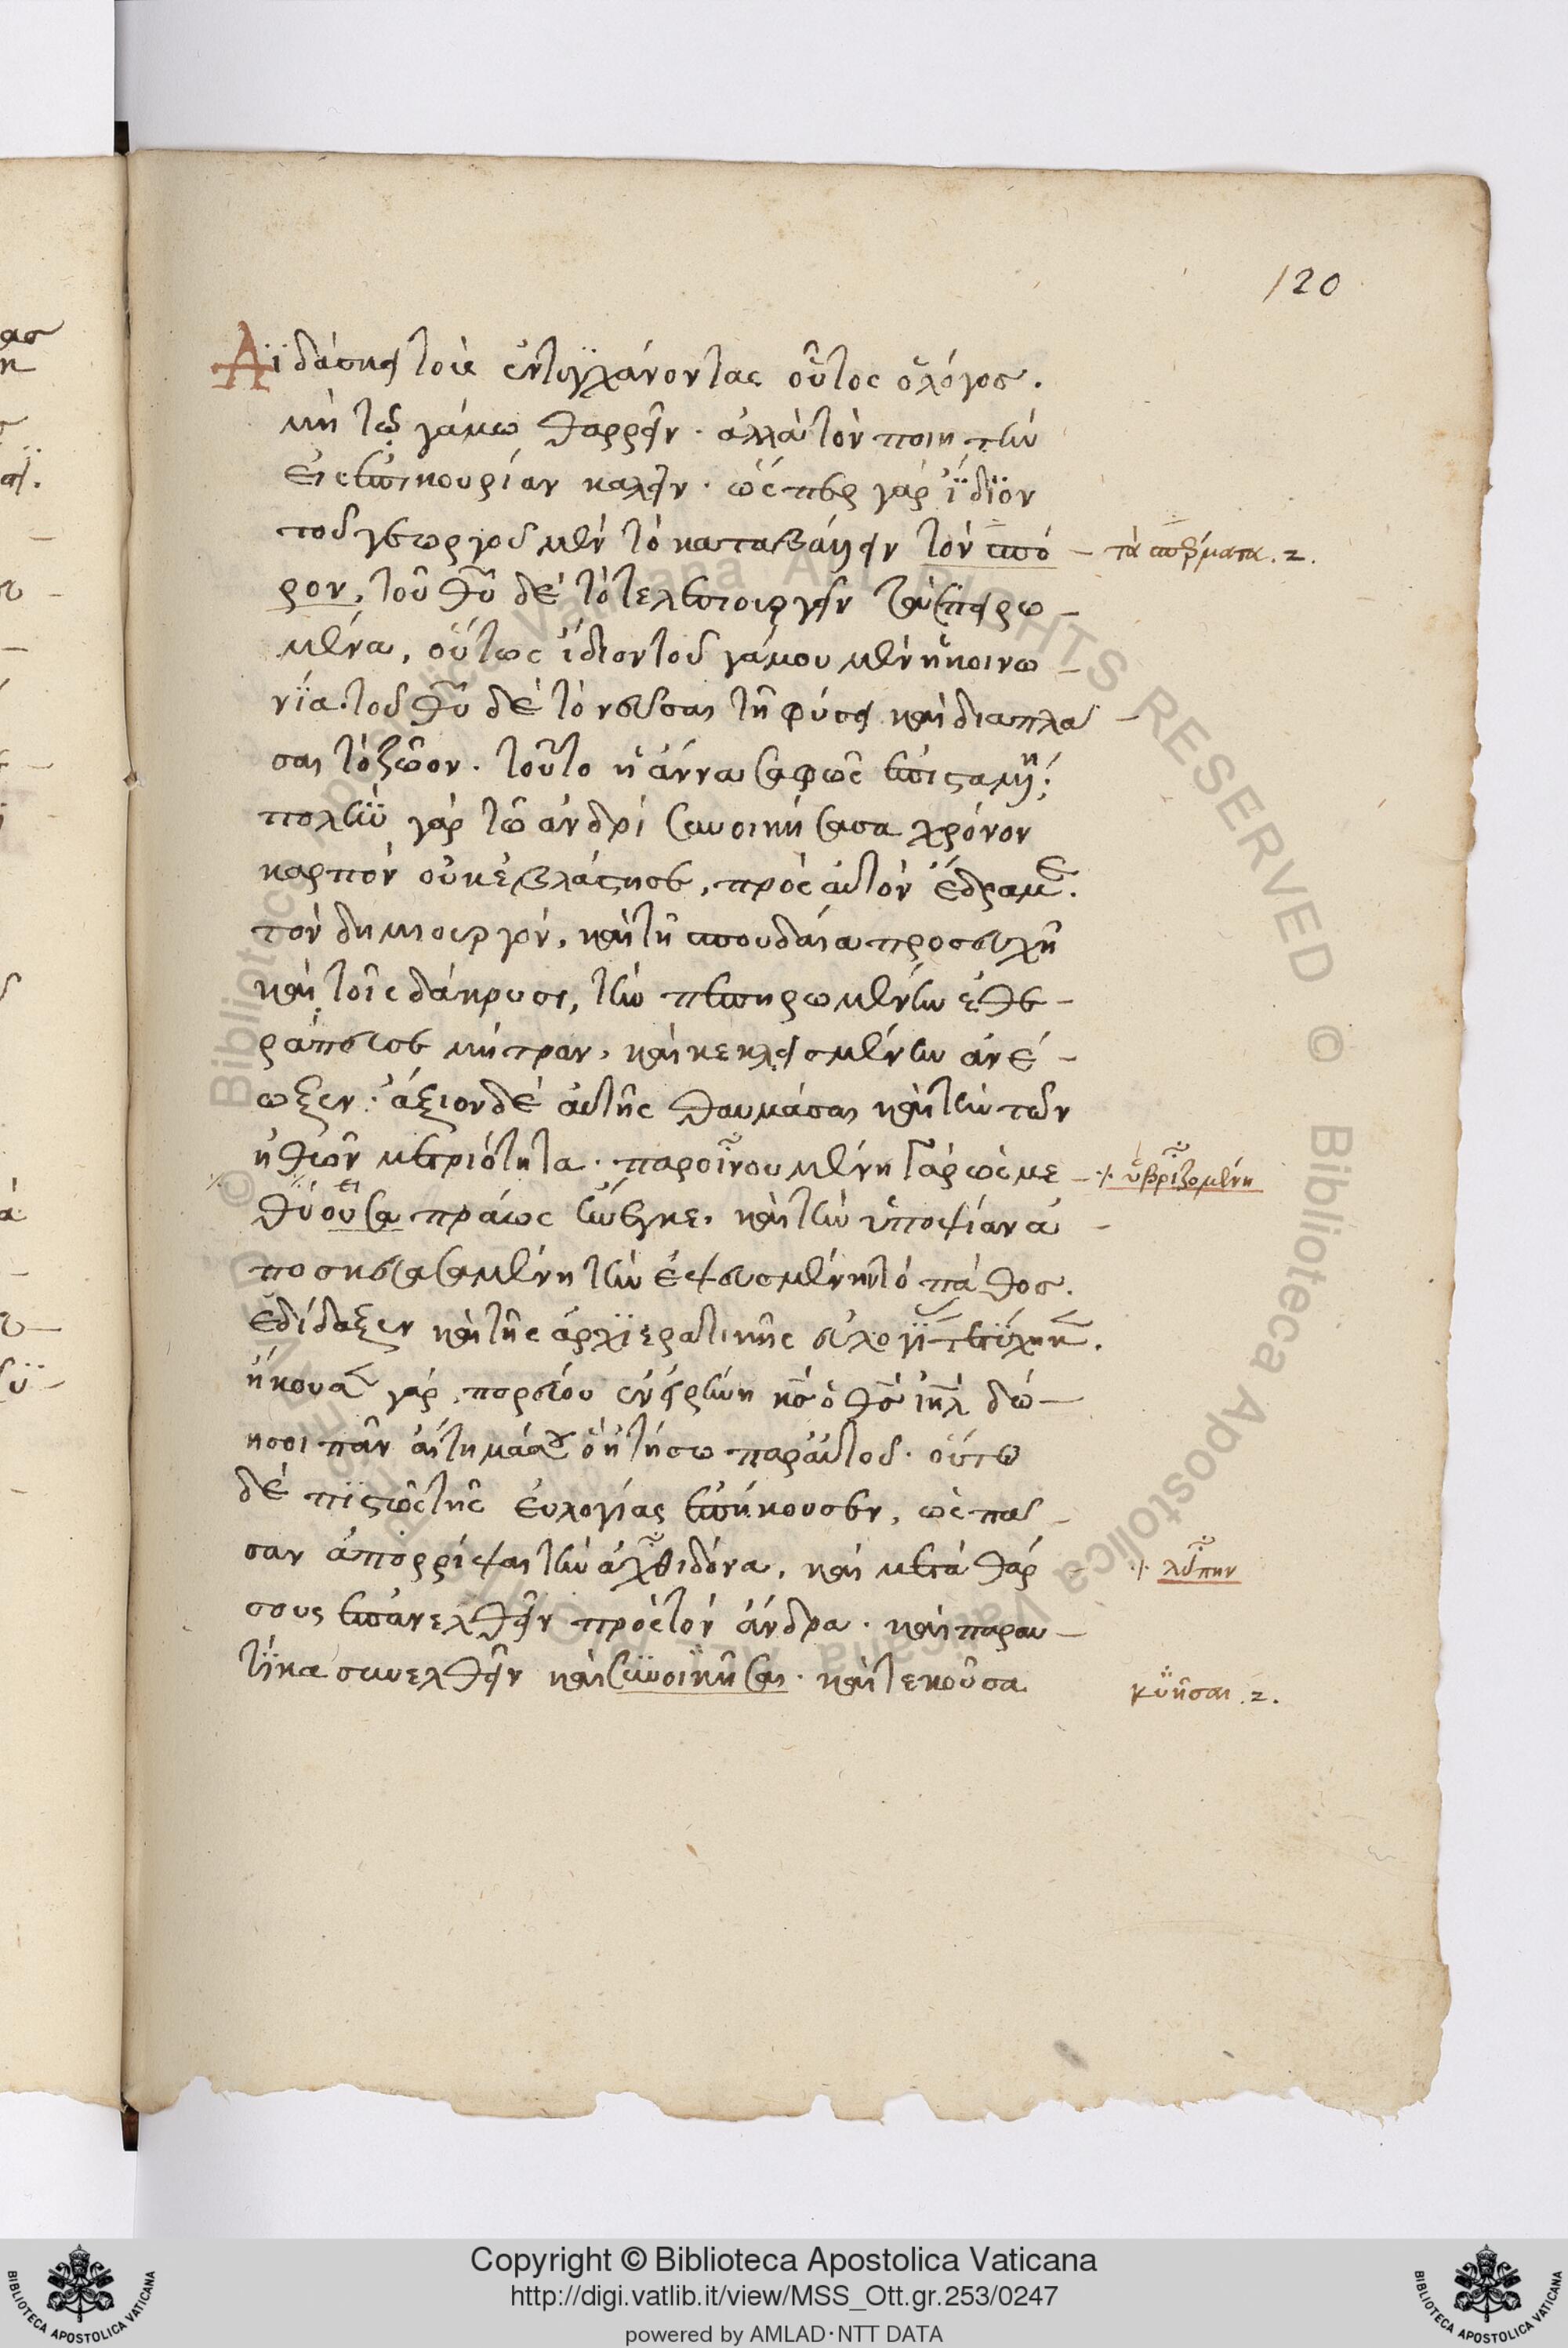 120
Αϊδάσκει τοὺς ἐντυγχάνοντας οὗτος ὁ λόγος.
μὴ τῷ γάμω θαρρεῖν. ἀλλὰ τὸν ποιητὴν
εἰς ἐπικουρίαν καλεῖν. ὥσπερ γὰρ ἴδϊον
τοῦ γεωργοῦ μὲν τὸ καταβάλλειν τὸν σπό
ρον, τοῦ θῦ δὲ τὸ τελεσιουργεῖν τὰ σπειρω
μένα, οὕτως ἴδιον τοῦ γάμου μὲν ἡ κοινω
νία. τοῦ θῦ δὲ τὸ νεῦσαι τῆ φύσει καὶ διαπλά
σαι τὸ ζῶον. τοῦτο ἡ ἄννα σαφῶς ἐπισταμένη
πολὺν γὰρ τῶ ἀνδρὶ συνοικήσασα χρόνον
καρπὸν οὐκ ἐβλάστησε, πρὸς αὐτὸν ἔδραμε.
τὸν δημιουργὸν, καὶ τῆ σπουδαία προσευχῆ
καὶ τοῖς δάκρυσι, τὴν πεπηρωμένην ἐθε
ράπευσε μήτραν, καὶ κεκλεισμένην ἀνέ
ωξεν. ἄξιον δὲ αὐτῆς θαυμάσαι καὶ τὴν τῶν
ἠθῶν μετριότητα. παροινουμένη γὰρ ὡς με
θύουσα πράως ἤνεγκε. καὶ τὴν ὑποψίαν ἀ
ποσκευασαμένη τὴν ἐψευσμένην τὸ πάθος.
ἐδίδαξεν καὶ τῆς ἀρχϊερατικῆς εὐλογί τετύχηκ.
ἤκουσε γὰρ, πορεύου ἐν εἰρήνη κς ὁ θς ἰηλ δώ
ησοι πᾶν αἴτημά σου ὃ ἠτήσω παρ αὐτοῦ. οὕτω
δὲ πϊστῶς τῆς εὐλογίας ἐπήκουσεν, ὡς πᾶ
σαν ἀπορρίψαι τὴν ἀχθιδόνα, καὶ μετὰ θάρ
σους ἐπανελθεῖν πρὸς τὸν ἄνδρα. καὶ παραυ
τίκα συνελθεῖν καὶ συνοικῆσαι. καὶ τεκοῦσα
τὰ σπέρματα. 2.
ὑβριζομένη
λύπην
κυῆσαι. 2.
Copyright © Biblioteca Apostolica Vaticana
http://digi.vatlib.it/view/MSS_Ott.gr.253/0247
powered by AMLAD·NTT DATA